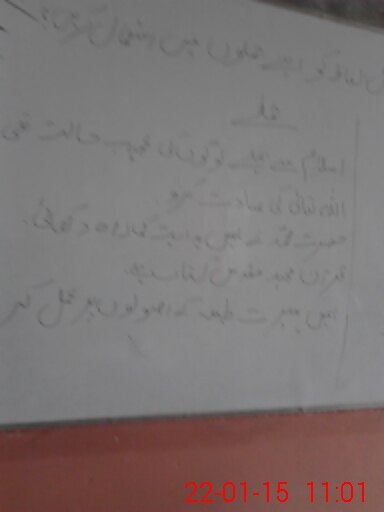 الفاظ کو اپنے جملوں میں استعمال کریں:
جملے
اسلام سے پہلے لوگوں کی عجیب حالت تھی
اللہ تعالیٰ کی عبادت کرو
حضرت محمدؐ نے ہمیں ہدایت کا راستہ دکھایا
قرآن مجید مقدس کتاب ہے
ہمیں سیرت طیبہ کے اصولوں پر عمل کر
22-01-15 11:01